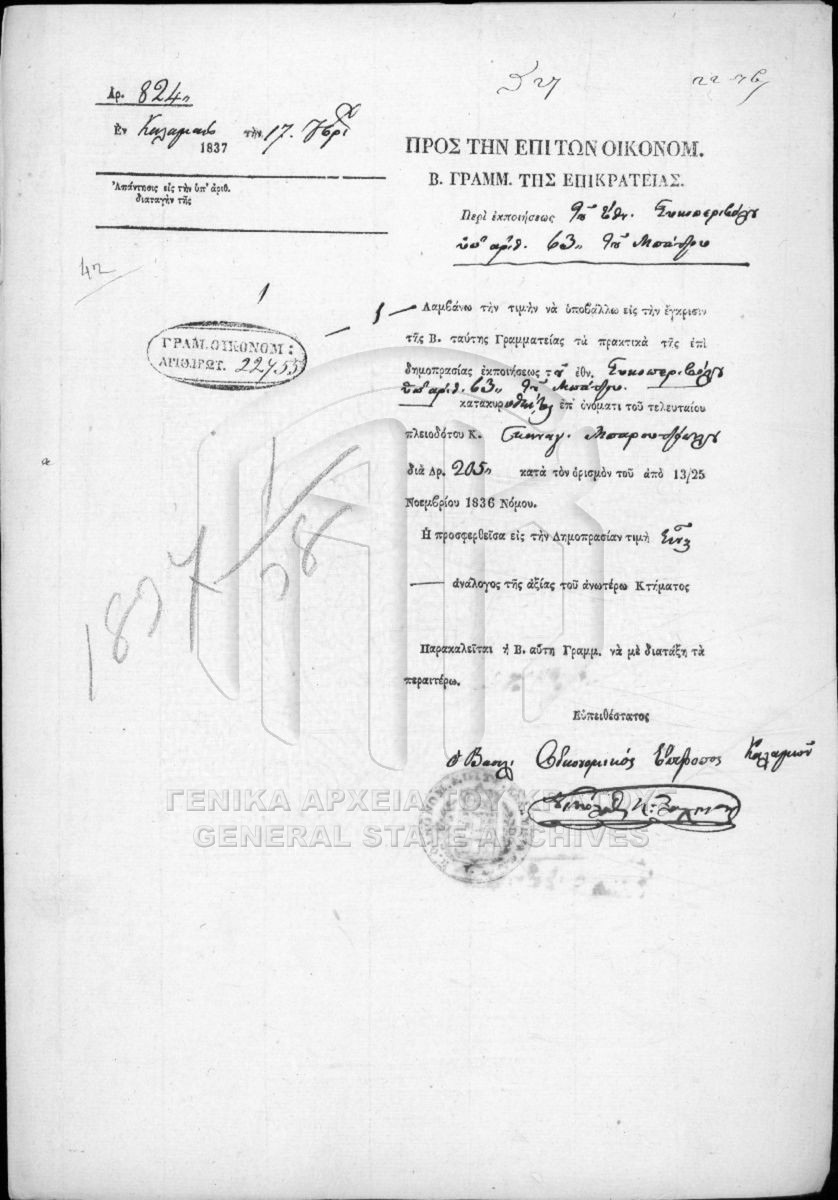 Αρ. 824
Ἐν Καλαμαις τὴν 17.
1837
Ἀπάντησις εἰς τὴν ὑπ' ἀριθ.
διαταγὴν τῆς
ΠΡΟΣ ΤΗΝ ΕΠΙ ΤΩΝ ΟΙΚΟΝΟΜ.
Β. ΓΡΑΜΜ. ΤΗΣ ΕΠΙΚΡΑΤΕΙΑΣ.
Περὶ ἐκποιήσεως τοῦ ἐθν. Συκοπεριβόλου
ὑπ' ἀρίθ. 63
42
1
ΓΡΑΜ. ΟΙΚΟΝΟΜ:
ΑΡΙΘ. ΠΡΩΤ. 22755
Λαμβάνω τὴν τιμὴν νὰ ὑποβάλλω εἰς τὴν ἔγκρισιν
τῆς Β. ταύτης Γραμματείας τὰ πρακτικὰ τῆς ἐπὶ
δημοπρασίας ἐκποιήσεως τοῦ ἐθν. Συκοπεριβόλου
ὑπ' ἀριθ. 63
ἐπ' ὀνόματι τοῦ τελευταίου
πλειοδότου Κ. Παναγ.
διὰ Δρ. 205 κατὰ τὸν ὁρισμὸν τοῦ ἀπὸ 13/25
Νοεμβρίου 1836 Νόμου.
Ἡ προσφερθεῖσα εἰς τὴν Δημοπρασίαν τιμὴ
ἀνάλογος τῆς ἀξίας τοῦ ἀνωτέρω Κτήματος
Παρακαλεῖται ἡ Β. αὕτη Γραμμ. νὰ μὲ διατάξῃ τὰ
περαιτέρω.
Εὐπειθέστατος
ὁ Βασιλ. Οἰκονομικὸς Ἔφορος Καλαμῶν
ΓΕΝΙΚΑ ΑΡΧΕΙΑ ΤΟΥ ΚΡΑΤΟΥΣ
GENERAL STATE ARCHIVES